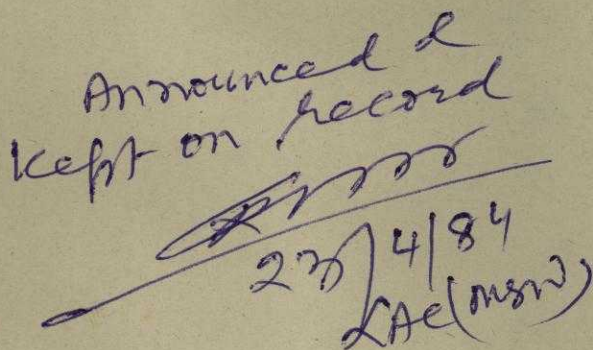 Announced &
Kept on record
23/4/84
LAC (MSW)